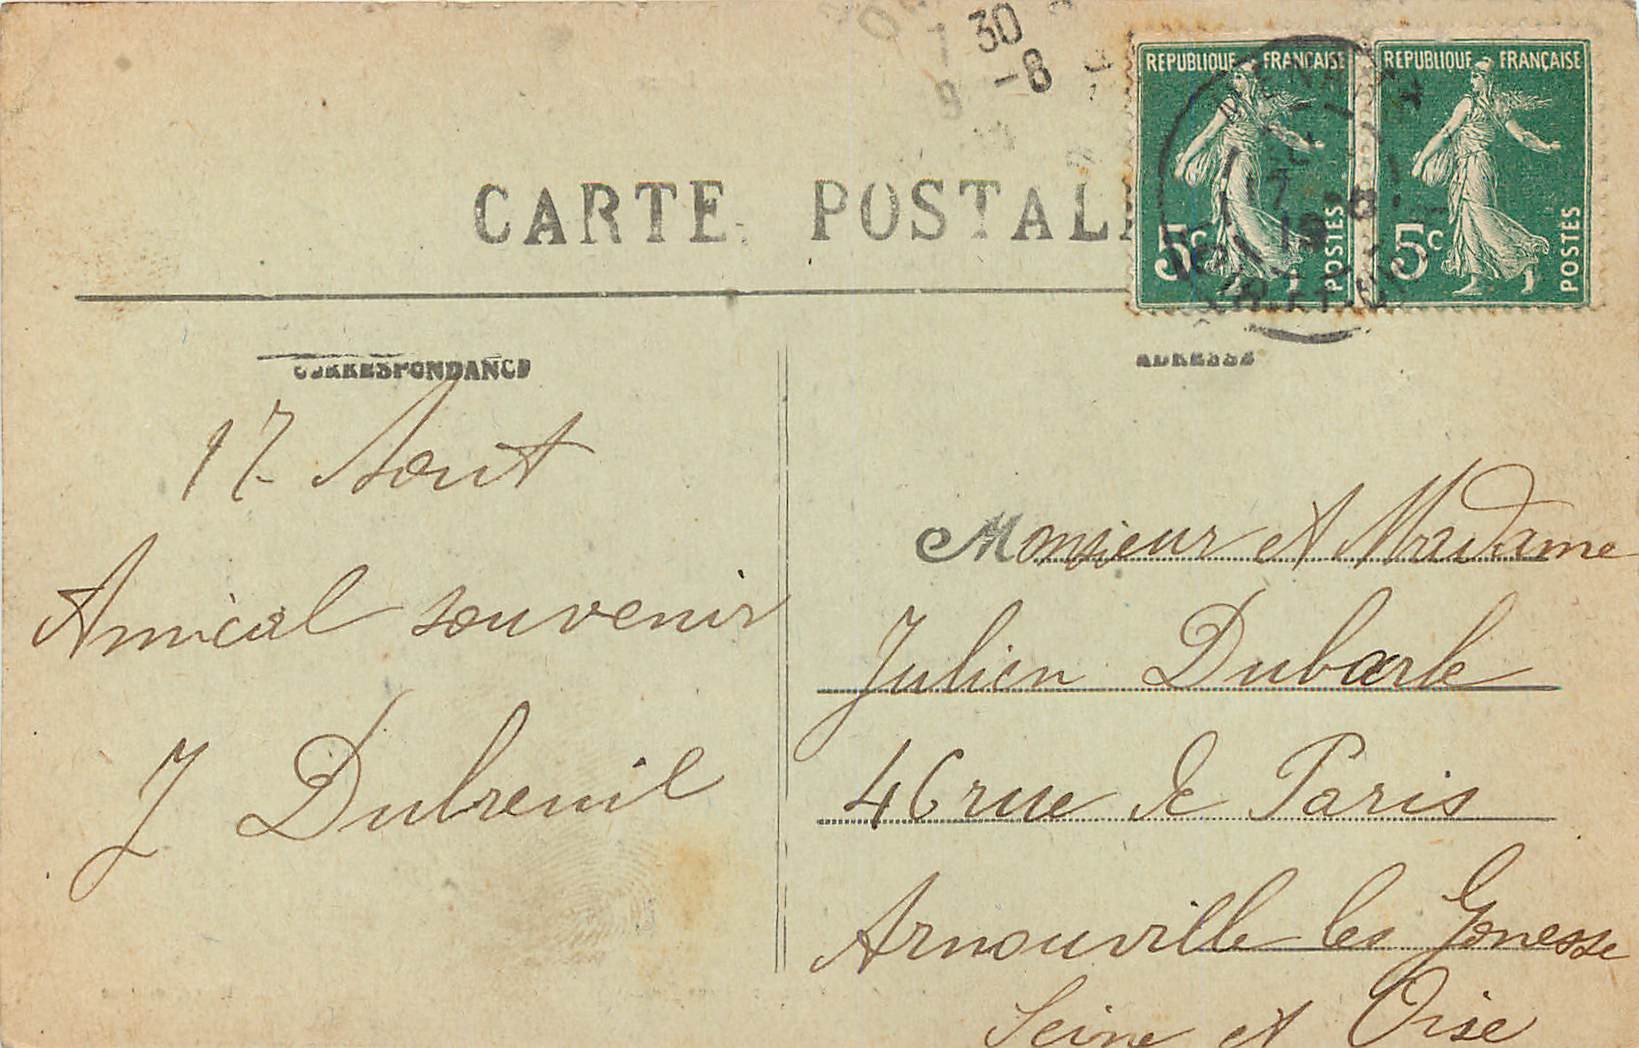 30
-8
REPUBLIQUE FRANÇAISE
5c POSTES
REPUBLIQUE FRANÇAISE
5c POSTES
CARTE POSTAL
CORRESPONDANCE
ADRESSE
17 Aout
Amical souvenir
J Dubreuil
Monsieur et Madame
Julien Dubarle
46 rue de Paris
Arnouville les Gonesse
Seine et Oise